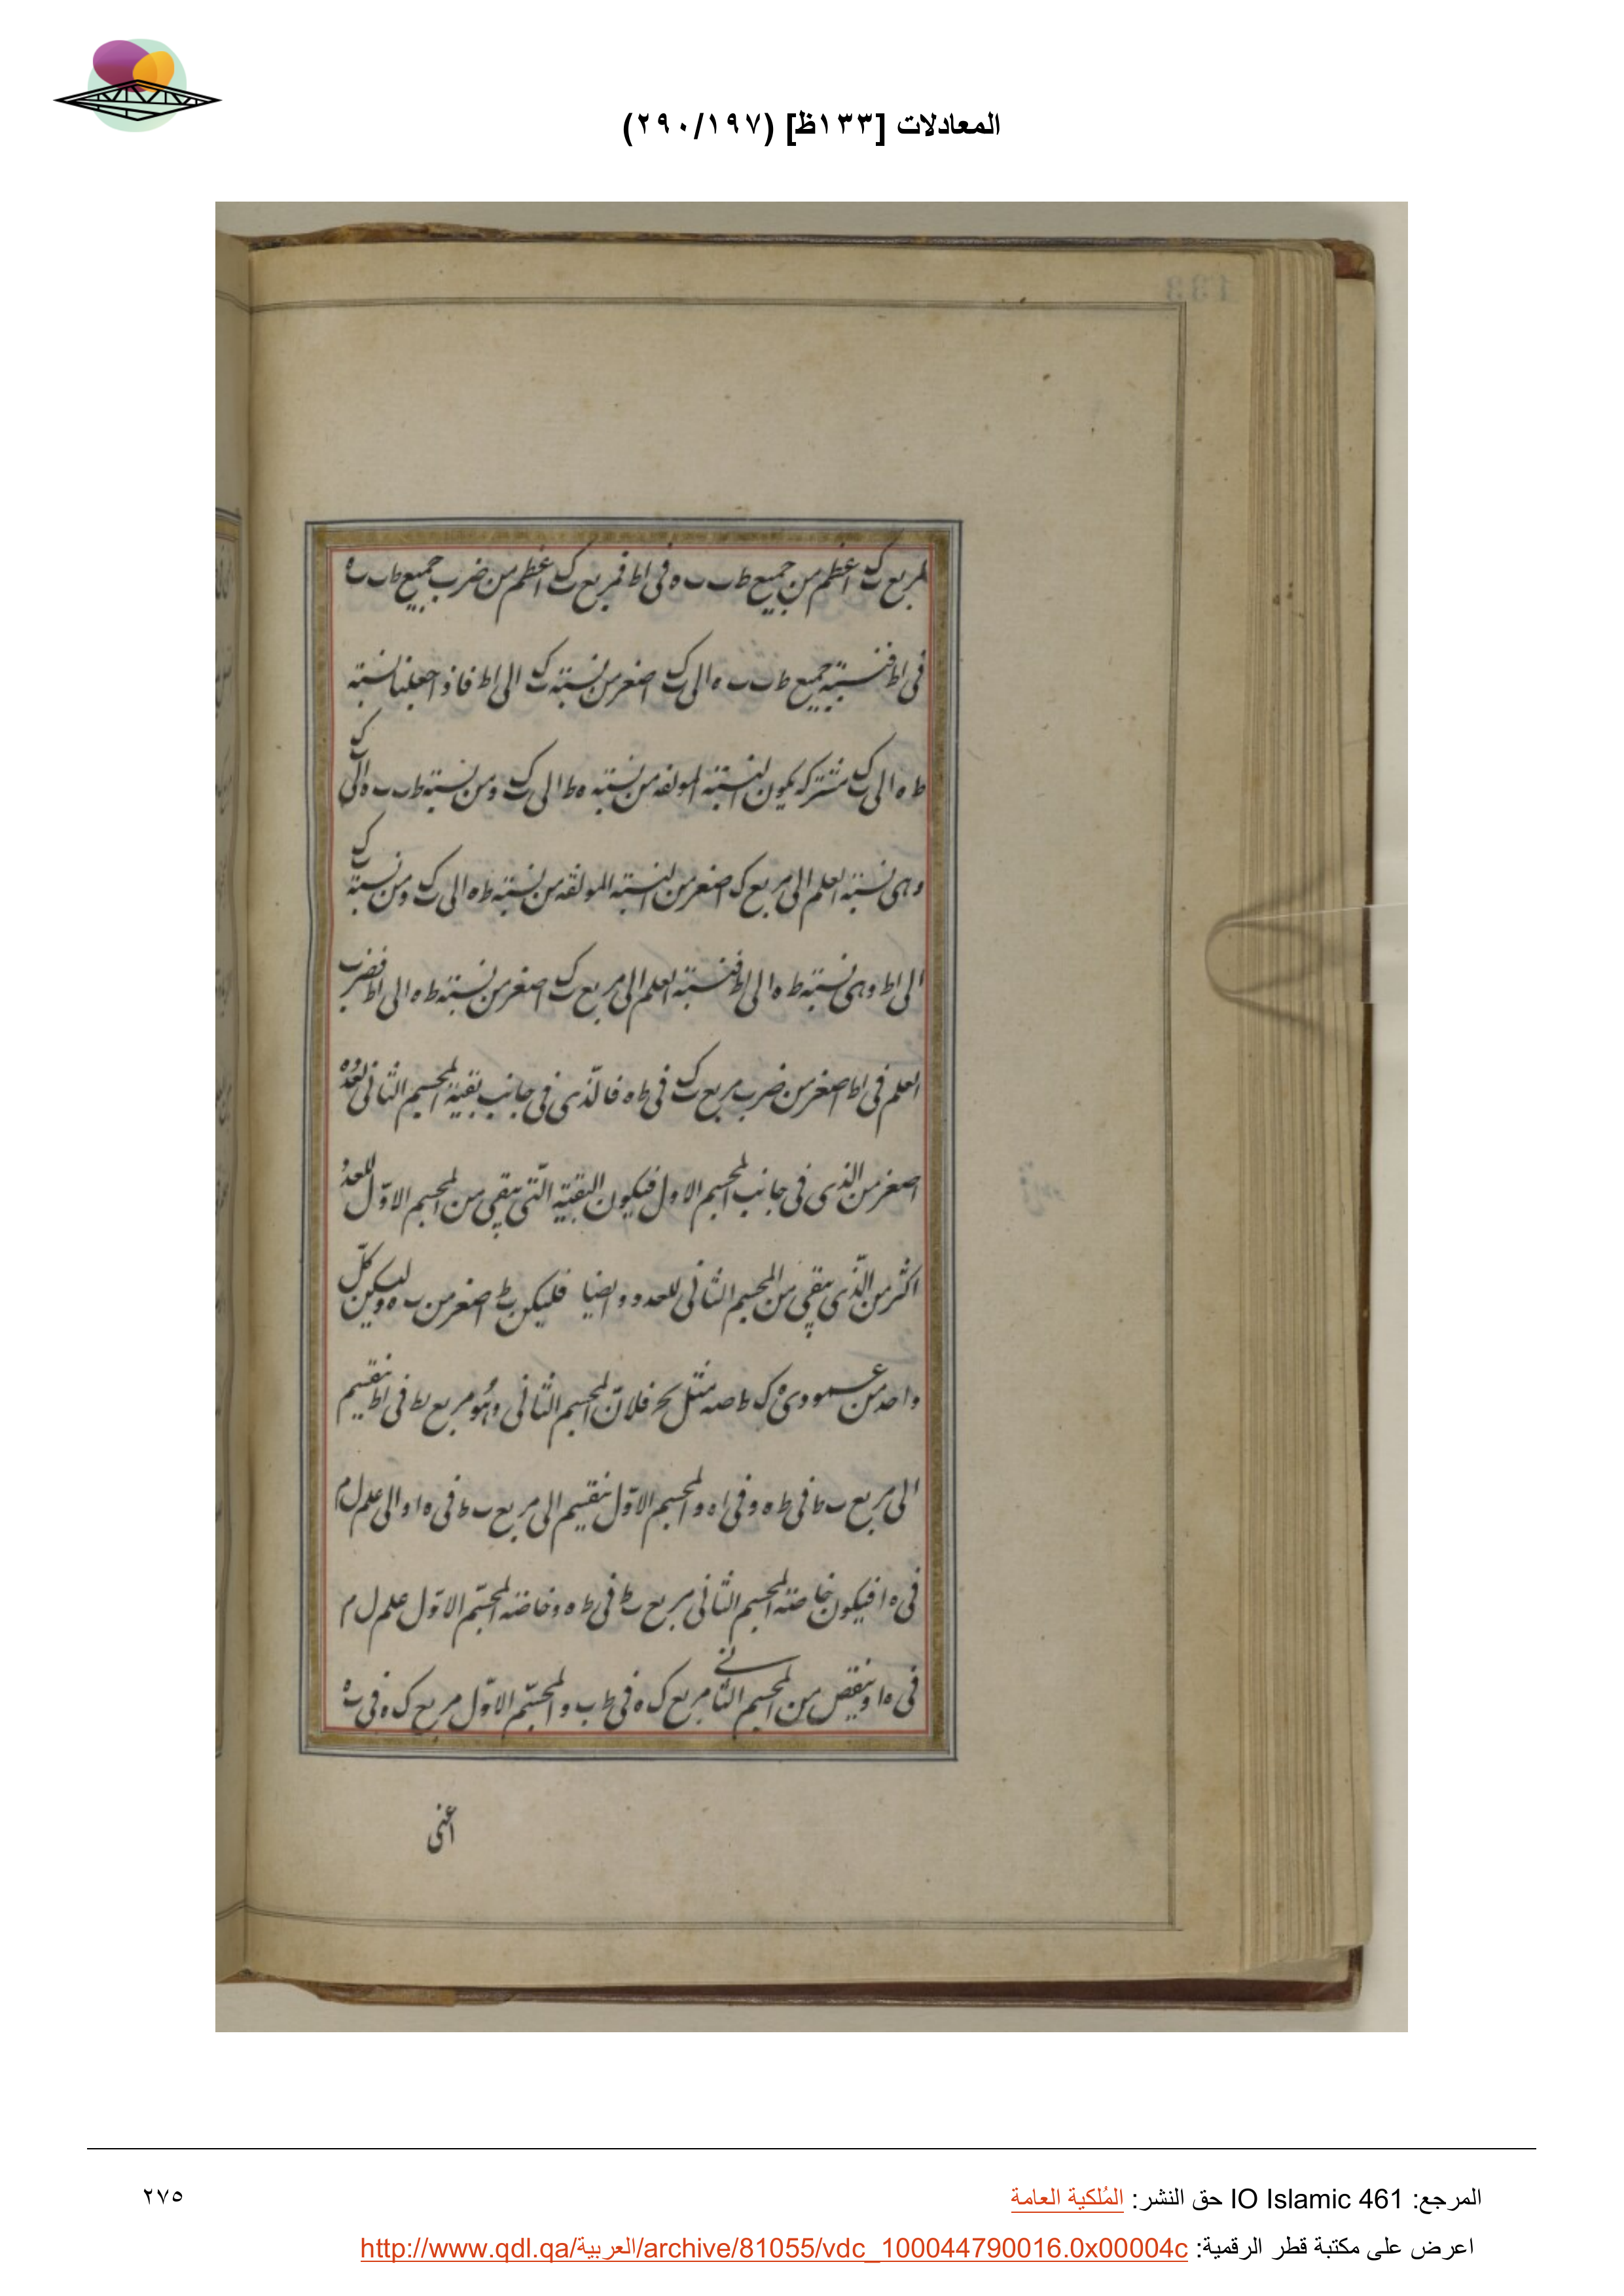 المعادلات [١٣٣ظ] (٢٩٠/١٩٧)
133
لمربع ب ك اعظم من جميع ط ب ب ه فى اط فمربع ب ك اعظم من ضرب جميع ط ب ب ه
فى اط فنسبة جميع ط ب ب ه الى ب ك اصغر من نسبة ب ك الى اط فاذا جعلنا نسبة
ط ه الى ب ك مشتركه يكون النسبة المولفه من نسبة ه ط الى ب ك ومن نسبة ط ب ب ه الى ب ك
وهى نسبة العلم الى مربع ب ك اصغر من النسبة المولفه من نسبة ط ه الى ب ك ومن نسبة ب ك
الى اط وهى نسبة ط ه الى اط فنسبة العلم الى مربع ب ك اصغر من نسبة ط ه الى اط فضرب
العلم فى اط اصغر من ضرب مربع ب ك فى ط ه فالّذى فى جانب بقية المجسم الثانى لعدده
اصغر من الذى فى جانب المجسم الاول فيكون البقية الّتى يبقى من المجسم الاوّل للعدد
اكثر من الّذى يبقى من المجسم الثانى للعدد وايضا فليكن ب ط اصغر من ب ه وليكن كلّ
واحد من عمودى ه ك ط صه مثل ب ح فلانّ المجسم الثانى وهُو مربع ب ط فى اط ينقسم
الى مربع ب ط فى ط ه وفى اه والمجسم الاوّل ينقسم الى مربع ب ط فى ه ا والى علم ل م
فى ه ا فيكون خاصة المجسم الثانى مربع ب ط فى ط ه وخاصة المجسّم الاوّل علم ل م
فى ه ا وينقص من المجسم الثانى مربع ك ه فى ط ب والمجسّم الاوّل مربع ك ه فى ب ه
اعنى
المرجع: IO Islamic 461 حق النشر: المُلكية العامة
٢٧٥
اعرض على مكتبة قطر الرقمية: http://www.qdl.qa/العربية/archive/81055/vdc_100044790016.0x00004c